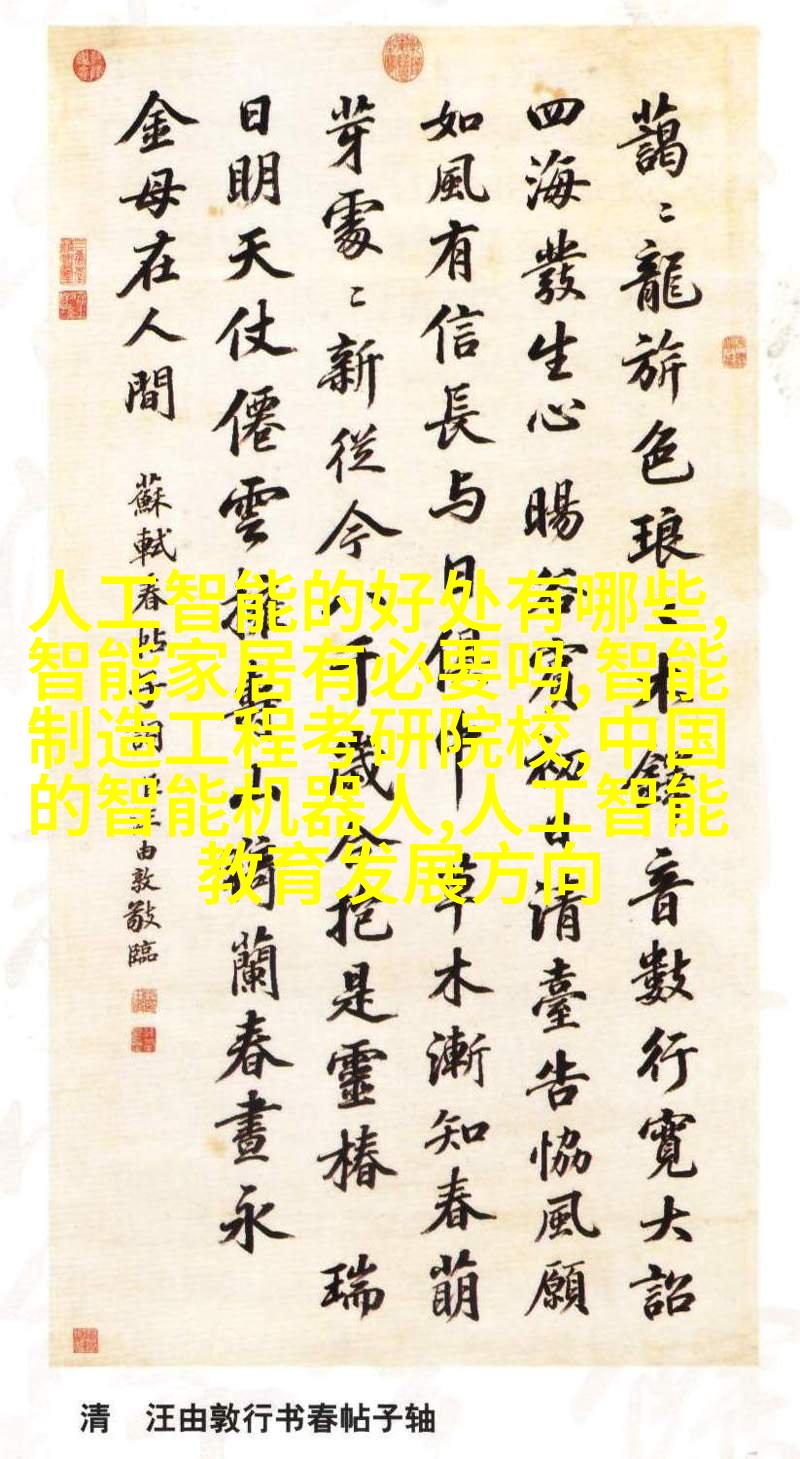 藹〻龍旂色琅〻木鐸音數行寬大詔
四海發生心 暘谷賓初日清臺告協風願
如風有信長与日俱中 草木漸知春萌
芽處〻新從今八千歲合抱是靈椿 瑞
日明天仗僊雲擁壽山猗蘭春晝永
金母在人間 蘇軾春帖子詞 臣汪由敦敬臨
人工智能的好处有哪些,
智能家居有必要吗,智能
制造工程考研院校,中国
的智能机器人,人工智能
教育发展方向
清 汪由敦行书春帖子轴